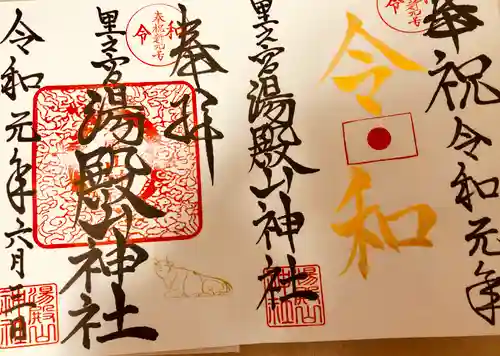 奉祝 令和元年
奉祝新元号
令和
里之宮湯殿山神社
湯殿山神社
奉拝
奉祝新元号
令和
里之宮湯殿山神社
令和元年六月三日
湯殿山神社